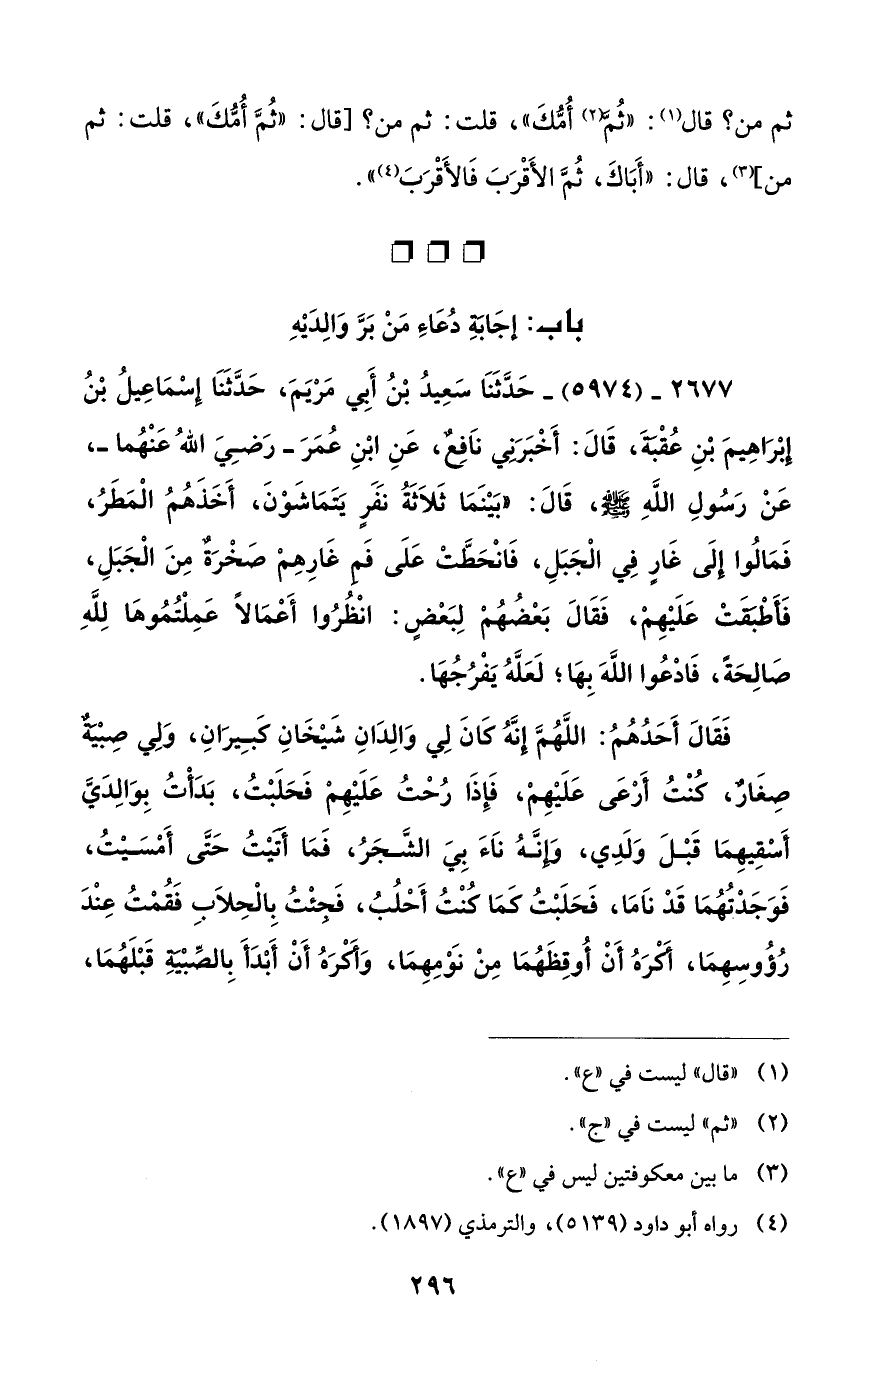 ثم من؟ قال(١): «ثُمَّ(٢) أُمُّكَ»، قلت: ثم من؟ [قال: «ثُمَّ أُمُّكَ»، قلت: ثم
من](٣)، قال: «أَبَاكَ، ثُمَّ الأَقْرَبَ فَالأَقْرَبَ(٤)».
❒ ❒ ❒
باب: إجَابَةِ دُعَاءِ مَنْ بَرَّ وَالِدَيْهِ
٢٦٧٧ ـ (٥٩٧٤) ـ حَدَّثَنَا سَعِيدُ بْنُ أَبِي مَرْيَمَ، حَدَّثَنَا إِسْمَاعِيلُ بْنُ
إِبْرَاهِيمَ بْنِ عُقْبَةَ، قَالَ: أَخْبَرَنِي نَافِعٌ، عَنِ ابْنِ عُمَرَ ـ رَضِيَ اللهُ عَنْهُما ـ،
عَنْ رَسُولِ اللَّهِ ﷺ، قَالَ: «بَيْنَمَا ثَلَاثَةُ نَفَرٍ يَتَمَاشَوْنَ، أَخَذَهُمُ الْمَطَرُ،
فَمَالُوا إِلَى غَارٍ فِي الْجَبَلِ، فَانْحَطَّتْ عَلَى فَمِ غَارِهِمْ صَخْرَةٌ مِنَ الْجَبَلِ،
فَأَطْبَقَتْ عَلَيْهِمْ، فَقَالَ بَعْضُهُمْ لِبَعْضٍ: انْظُرُوا أَعْمَالاً عَمِلْتُمُوهَا لِلَّهِ
صَالِحَةً، فَادْعُوا اللَّهَ بِهَا؛ لَعَلَّهُ يَفْرُجُهَا.
فَقَالَ أَحَدُهُمُ: اللَّهُمَّ إِنَّهُ كَانَ لِي وَالِدَانِ شَيْخَانِ كَبِيرَانِ، وَلِي صِبْيَةٌ
صِغَارٌ، كُنْتُ أَرْعَى عَلَيْهِمْ، فَإِذَا رُحْتُ عَلَيْهِمْ فَحَلَبْتُ، بَدَأْتُ بِوَالِدَيَّ
أَسْقِيهِمَا قَبْلَ وَلَدِي، وَإِنَّهُ نَاءَ بِيَ الشَّجَرُ، فَمَا أَتَيْتُ حَتَّى أَمْسَيْتُ،
فَوَجَدْتُهُمَا قَدْ نَامَا، فَحَلَبْتُ كَمَا كُنْتُ أَحْلُبُ، فَجِئْتُ بِالْحِلاَبِ فَقُمْتُ عِنْدَ
رُؤُوسِهِمَا، أَكْرَهُ أَنْ أُوقِظَهُمَا مِنْ نَوْمِهِمَا، وَأَكْرَهُ أَنْ أَبْدَأَ بِالصِّبْيَةِ قَبْلَهُمَا،
(١) «قال» ليست في «ع».
(٢) «ثم» ليست في «ج».
(٣) ما بين معكوفتين ليس في «ع».
(٤) رواه أبو داود (٥١٣٩)، والترمذي (١٨٩٧).
٢٩٦